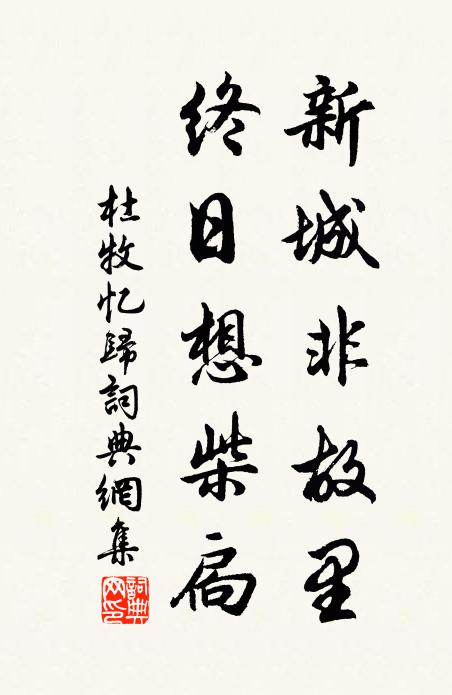 新城非故里
終日想柴扃
杜牧忆歸詞典網集
詞典网印